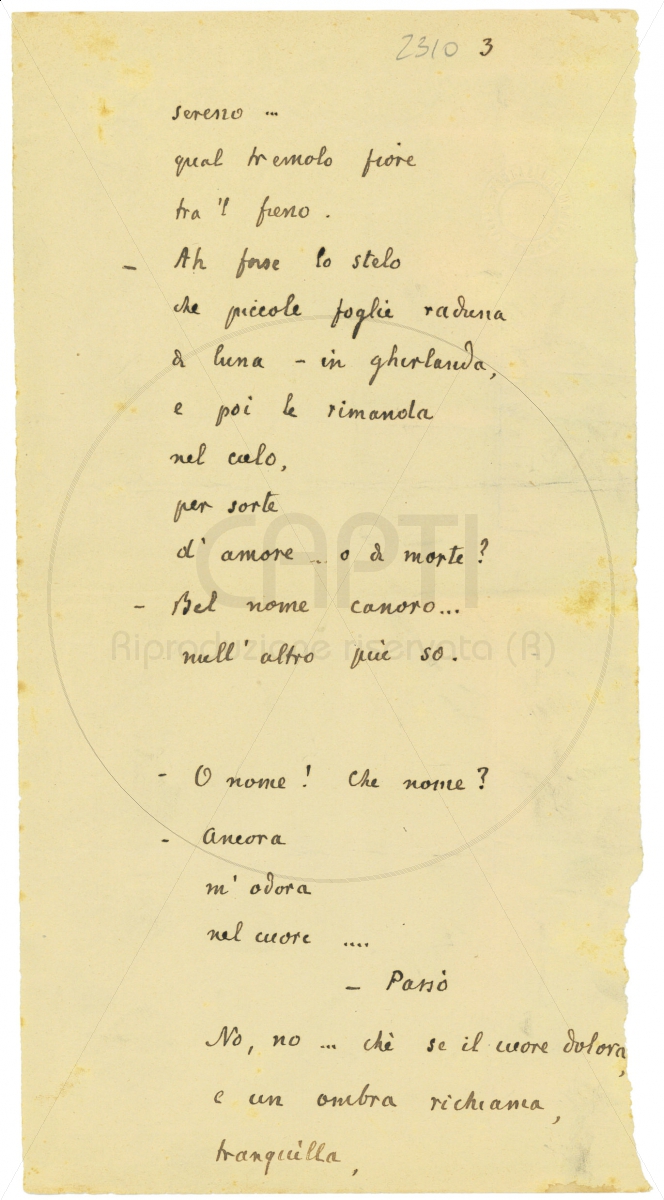 2310 3
sereno ...
qual tremolo fiore
tra 'l fieno.
- Ah forse lo stelo
che piccole foglie raduna
di luna - in ghirlanda,
e poi le rimanda
nel cielo,
per sorte
d' amore ... o di morte?
CAPTI
- Bel nome canoro...
Riproduzione riservata (R)
null' altro più so.
- O nome! Che nome?
- Ancora
m' odora
nel cuore ....
- Passò
No, no ... chè se il cuore dolora,
e un ombra richiama,
tranquilla,